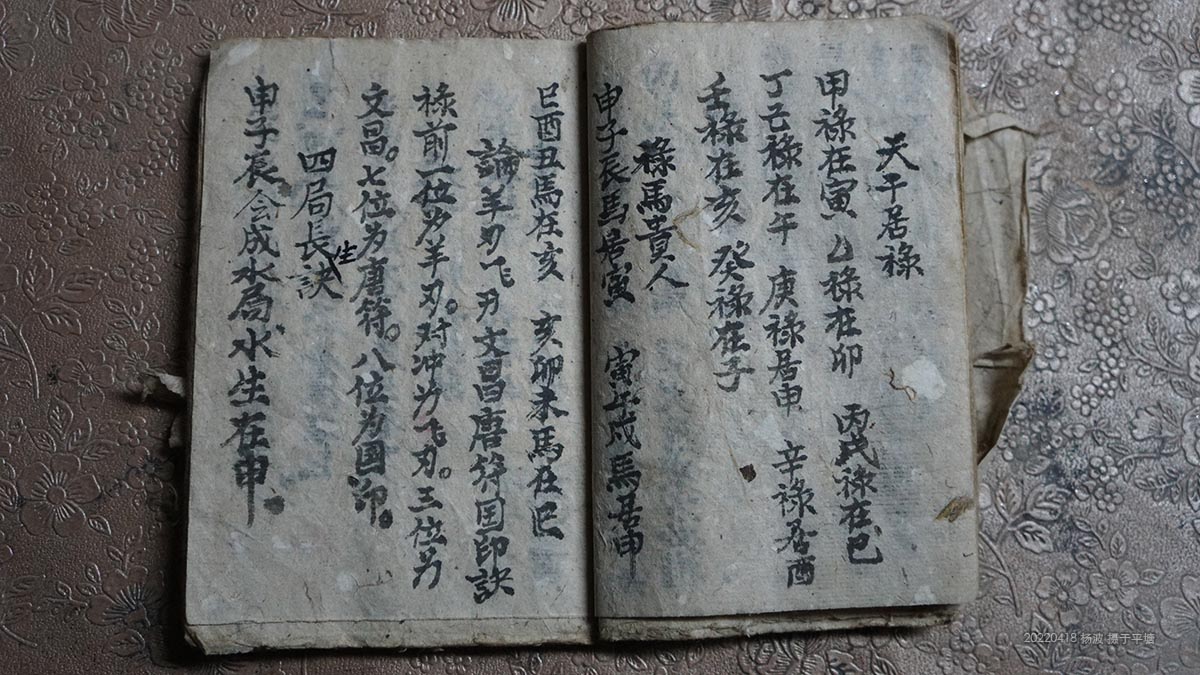 天干居祿
甲祿在寅 乙祿在卯 丙戊祿在巳
丁己祿在午 庚祿居申 辛祿居酉
壬祿在亥 癸祿在子
祿馬貴人
申子辰馬居寅 寅午戌馬居申
巳酉丑馬在亥 亥卯未馬在巳
論羊刃飞刃文昌唐符国印訣
祿前一位为羊刃。对冲为飞刃。三位为
文昌。七位为唐符。八位为国印。
四局長生訣
申子辰会成水局水生在申。
20220418 杨波 摄于平塘